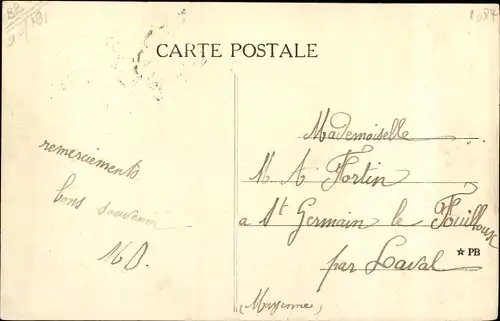 1984
CARTE POSTALE
remerciements
bons souvenir
M D.
Mademoiselle
M A Fortin
a St Germain le Fouilloux
par Laval
★ PB
(Mayenne)